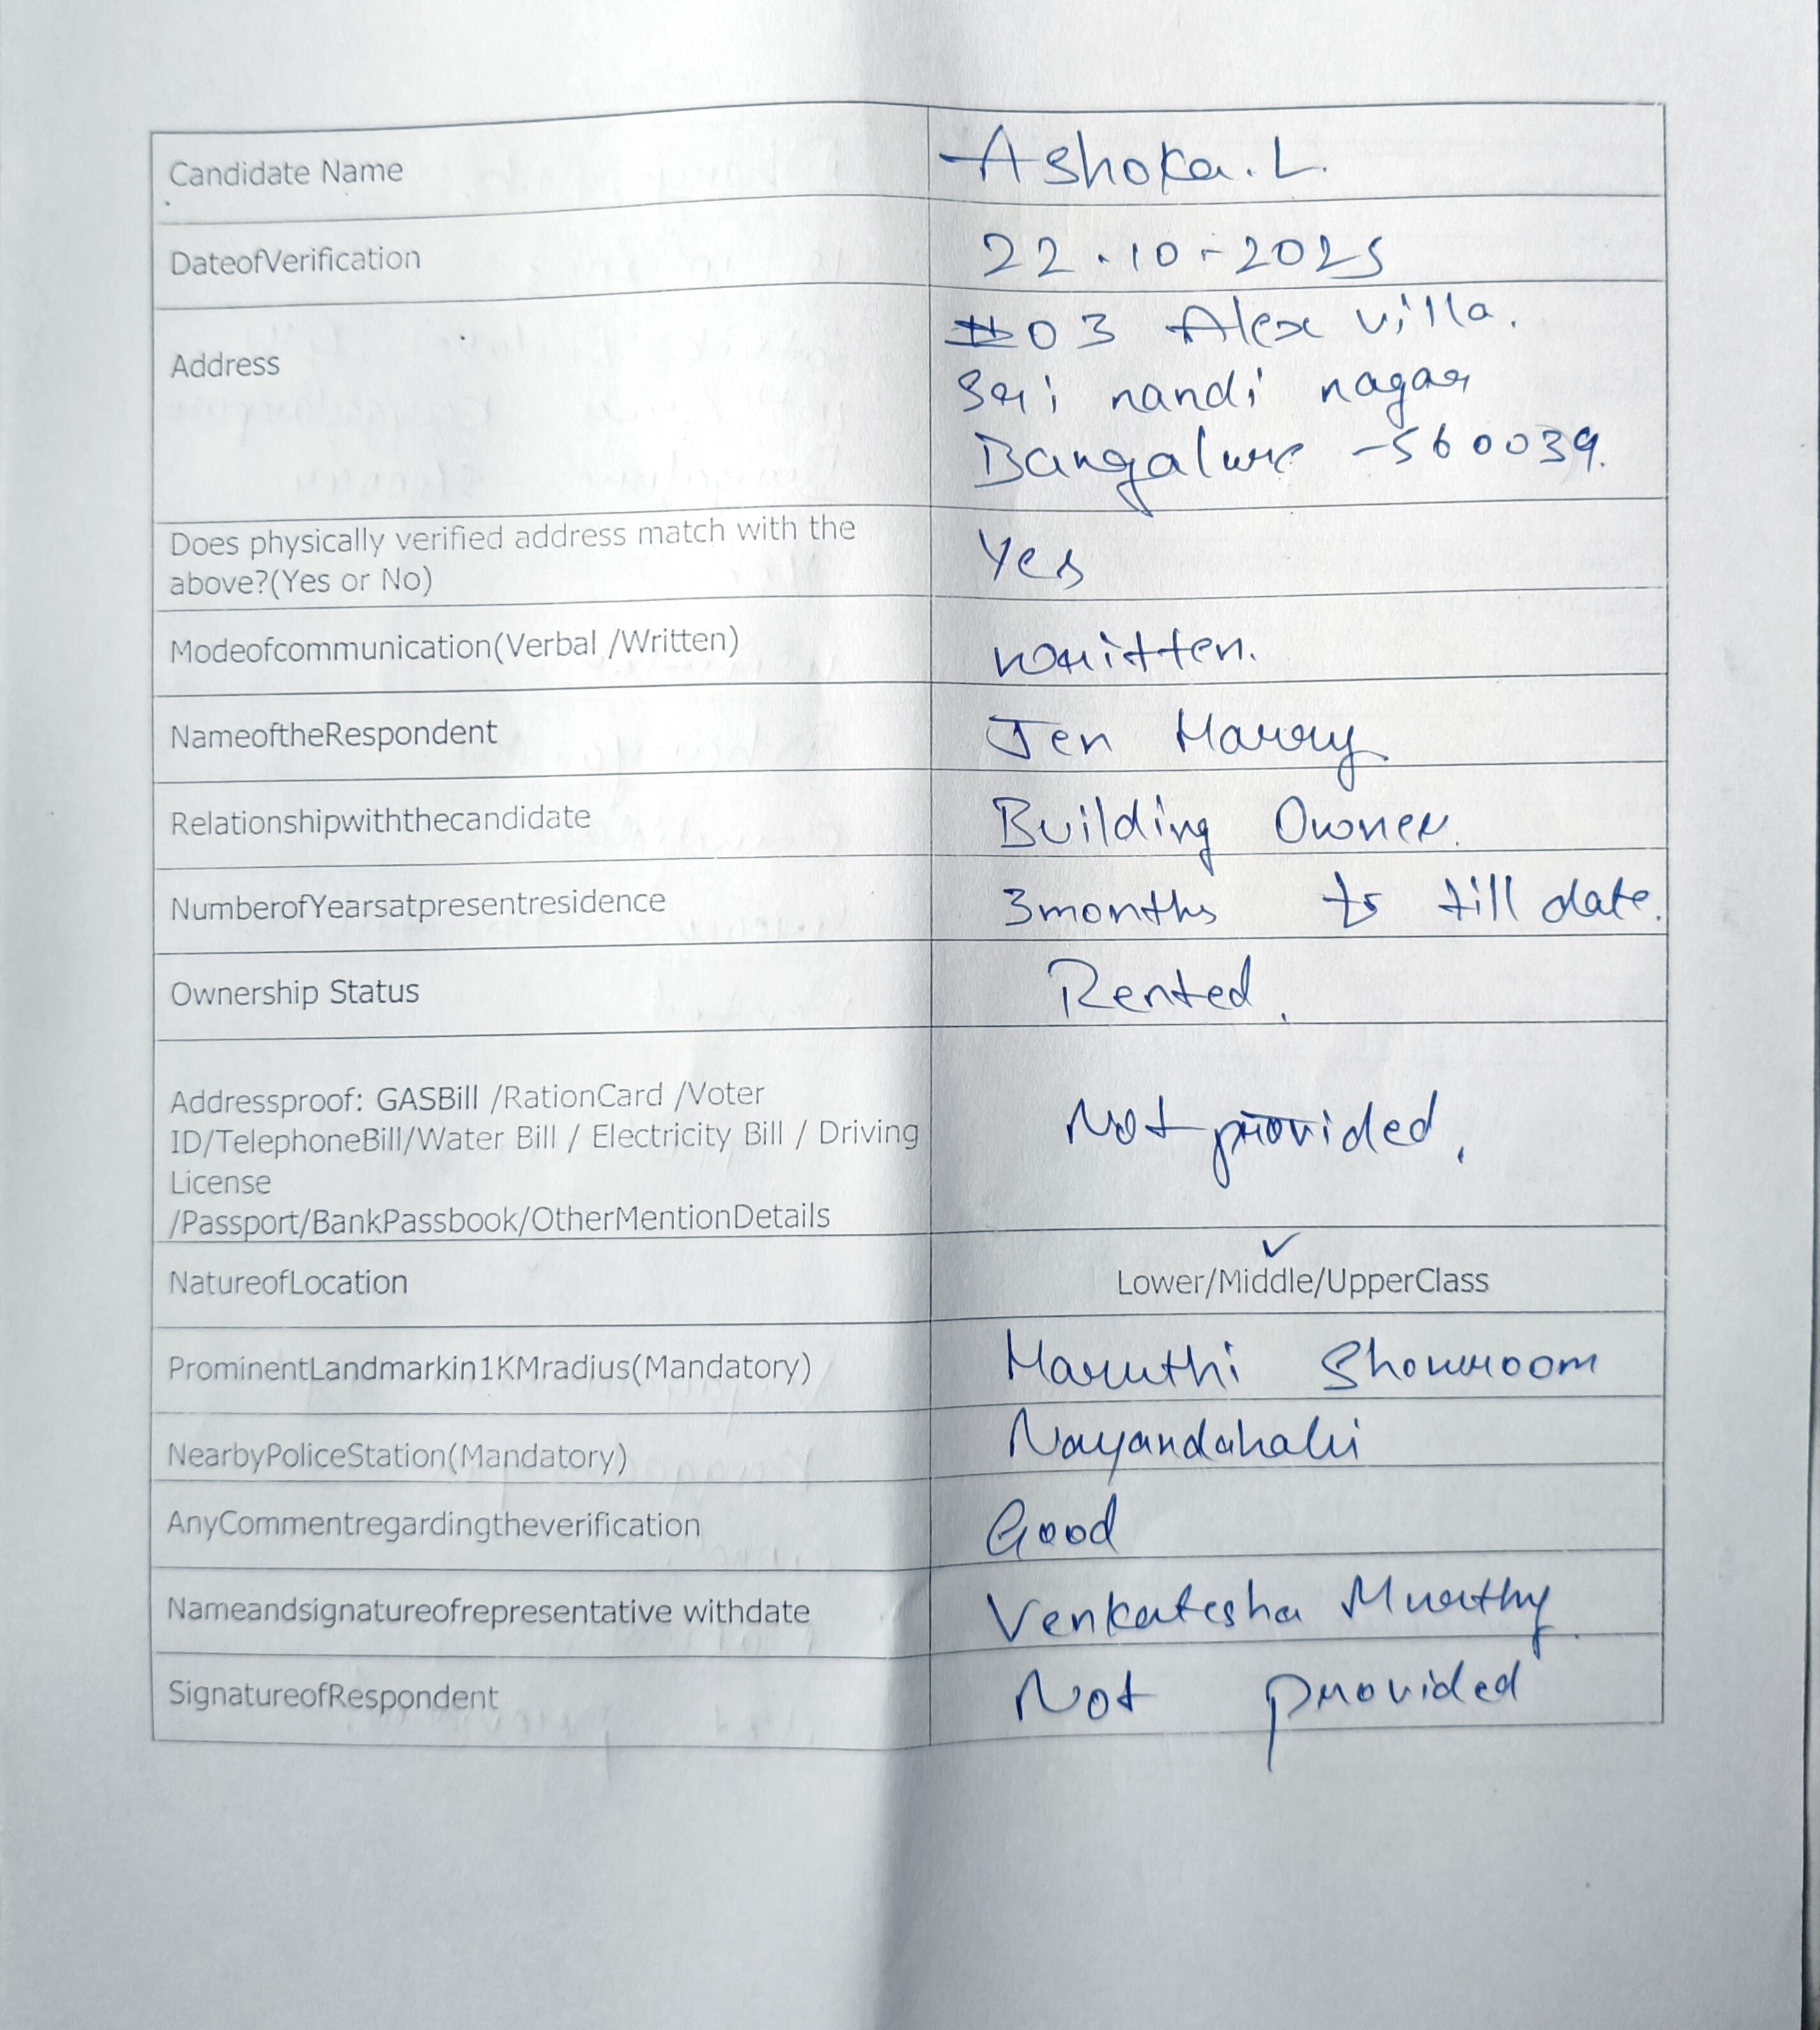 Candidate Name
Ashoka. L.
DateofVerification
22.10-2025
Address
#03 Alex villa.
Sri nandi nagar
Bangalore -560039.
Does physically verified address match with the
above?(Yes or No)
Yes
Modeofcommunication(Verbal /Written)
written.
NameoftheRespondent
Jen Marry
Relationshipwiththecandidate
Building Owner.
NumberofYearsatpresentresidence
3months to till date.
Ownership Status
Rented.
Addressproof: GASBill /RationCard /Voter
ID/TelephoneBill/Water Bill / Electricity Bill / Driving
License
/Passport/BankPassbook/OtherMentionDetails
Not provided.
NatureofLocation
Lower/Middle/UpperClass
ProminentLandmarkin1KMradius(Mandatory)
Maruthi Showroom
NearbyPoliceStation(Mandatory)
Nayandahalli
AnyCommentregardingtheverification
Good
Nameandsignatureofrepresentative withdate
Venkatesha Murthy.
SignatureofRespondent
Not provided